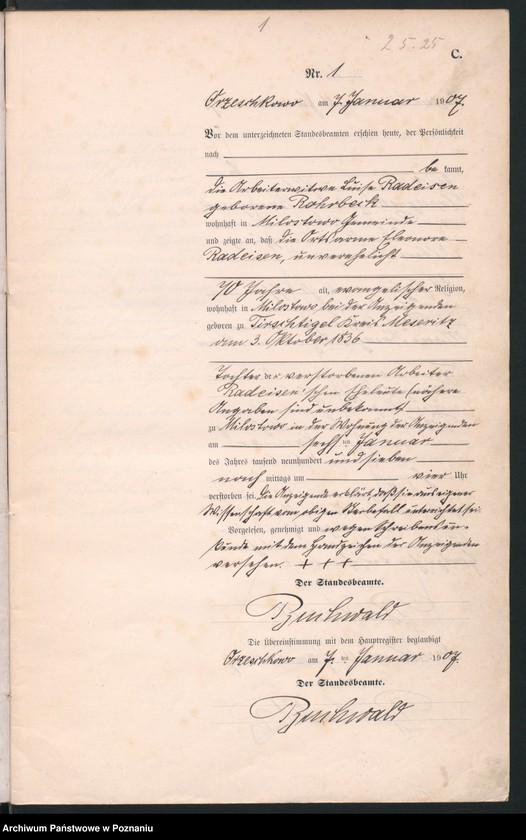 1
25.25
C.
Nr. 1
Orzeschkowo am 7. Januar 1907.
Vor dem unterzeichneten Standesbeamten erschien heute, der Persönlichkeit
nach
be kannt,
die Arbeiterwitwe Luise Radeisen
geborene Rohrbeck
wohnhaft in Milostowo Gemeinde
und zeigte an, daß die Ortsarme Eleonore
Radeisen, unverehelicht
70 Jahre alt, evangelischer Religion,
wohnhaft in Milostowo bei der Anzeigenden
geboren zu Tirschtigel Kreis Meseritz
am 3. Oktober 1836
Tochter der verstorbenen Arbeiter
Radeisen'schen Eheleute (nähere
Angaben sind unbekannt)
zu Milostowo in der Wohnung der Anzeigenden
am sechsten Januar
des Jahres tausend neunhundert und sieben
nach mittags um vier Uhr
verstorben sei. Die Anzeigende erklärt, daß sie aus eigener
Wissenschaft vom obigen Sterbefall unterrichtet sei.
Vorgelesen, genehmigt und wegen Schreibensun-
kunde mit dem Handzeichen der Anzeigenden
versehen. + + +
Der Standesbeamte.
Buchwald
Die Übereinstimmung mit dem Hauptregister beglaubigt
Orzeschkowo am 7. ten Januar 1907.
Der Standesbeamte.
Buchwald
Archiwum Państwowe w Poznaniu